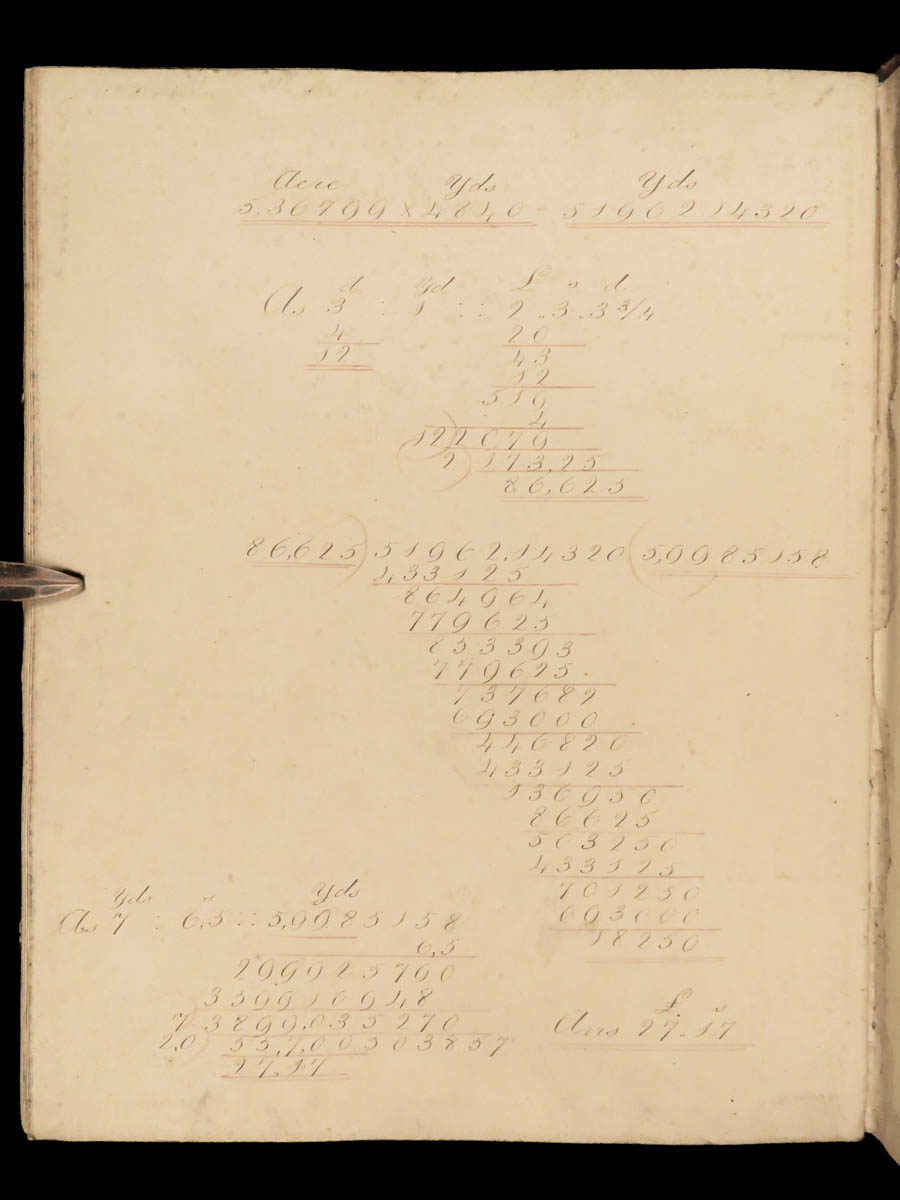 Acre Yds Yds
5,36799 × 4840 - 5196214320
d Yd £ s d
As 3 : 1 :: 2..3.3 3/4
4 20
12 43
12
519
4
12)2079
2)173,25
86,625
86,625)51962,14320(5,9985158
433125
864964
779625
853393
779625
737682
693000
446820
433125
136950
86625
503250
433125
701250
693000
18250
Yds s Yds
As 7 : 6,5 :: 5,99.85158
6,5
299925790
359910948
7)3899,035270
2,0)55,7,00503857
27,17
£ s
Ans 27.17